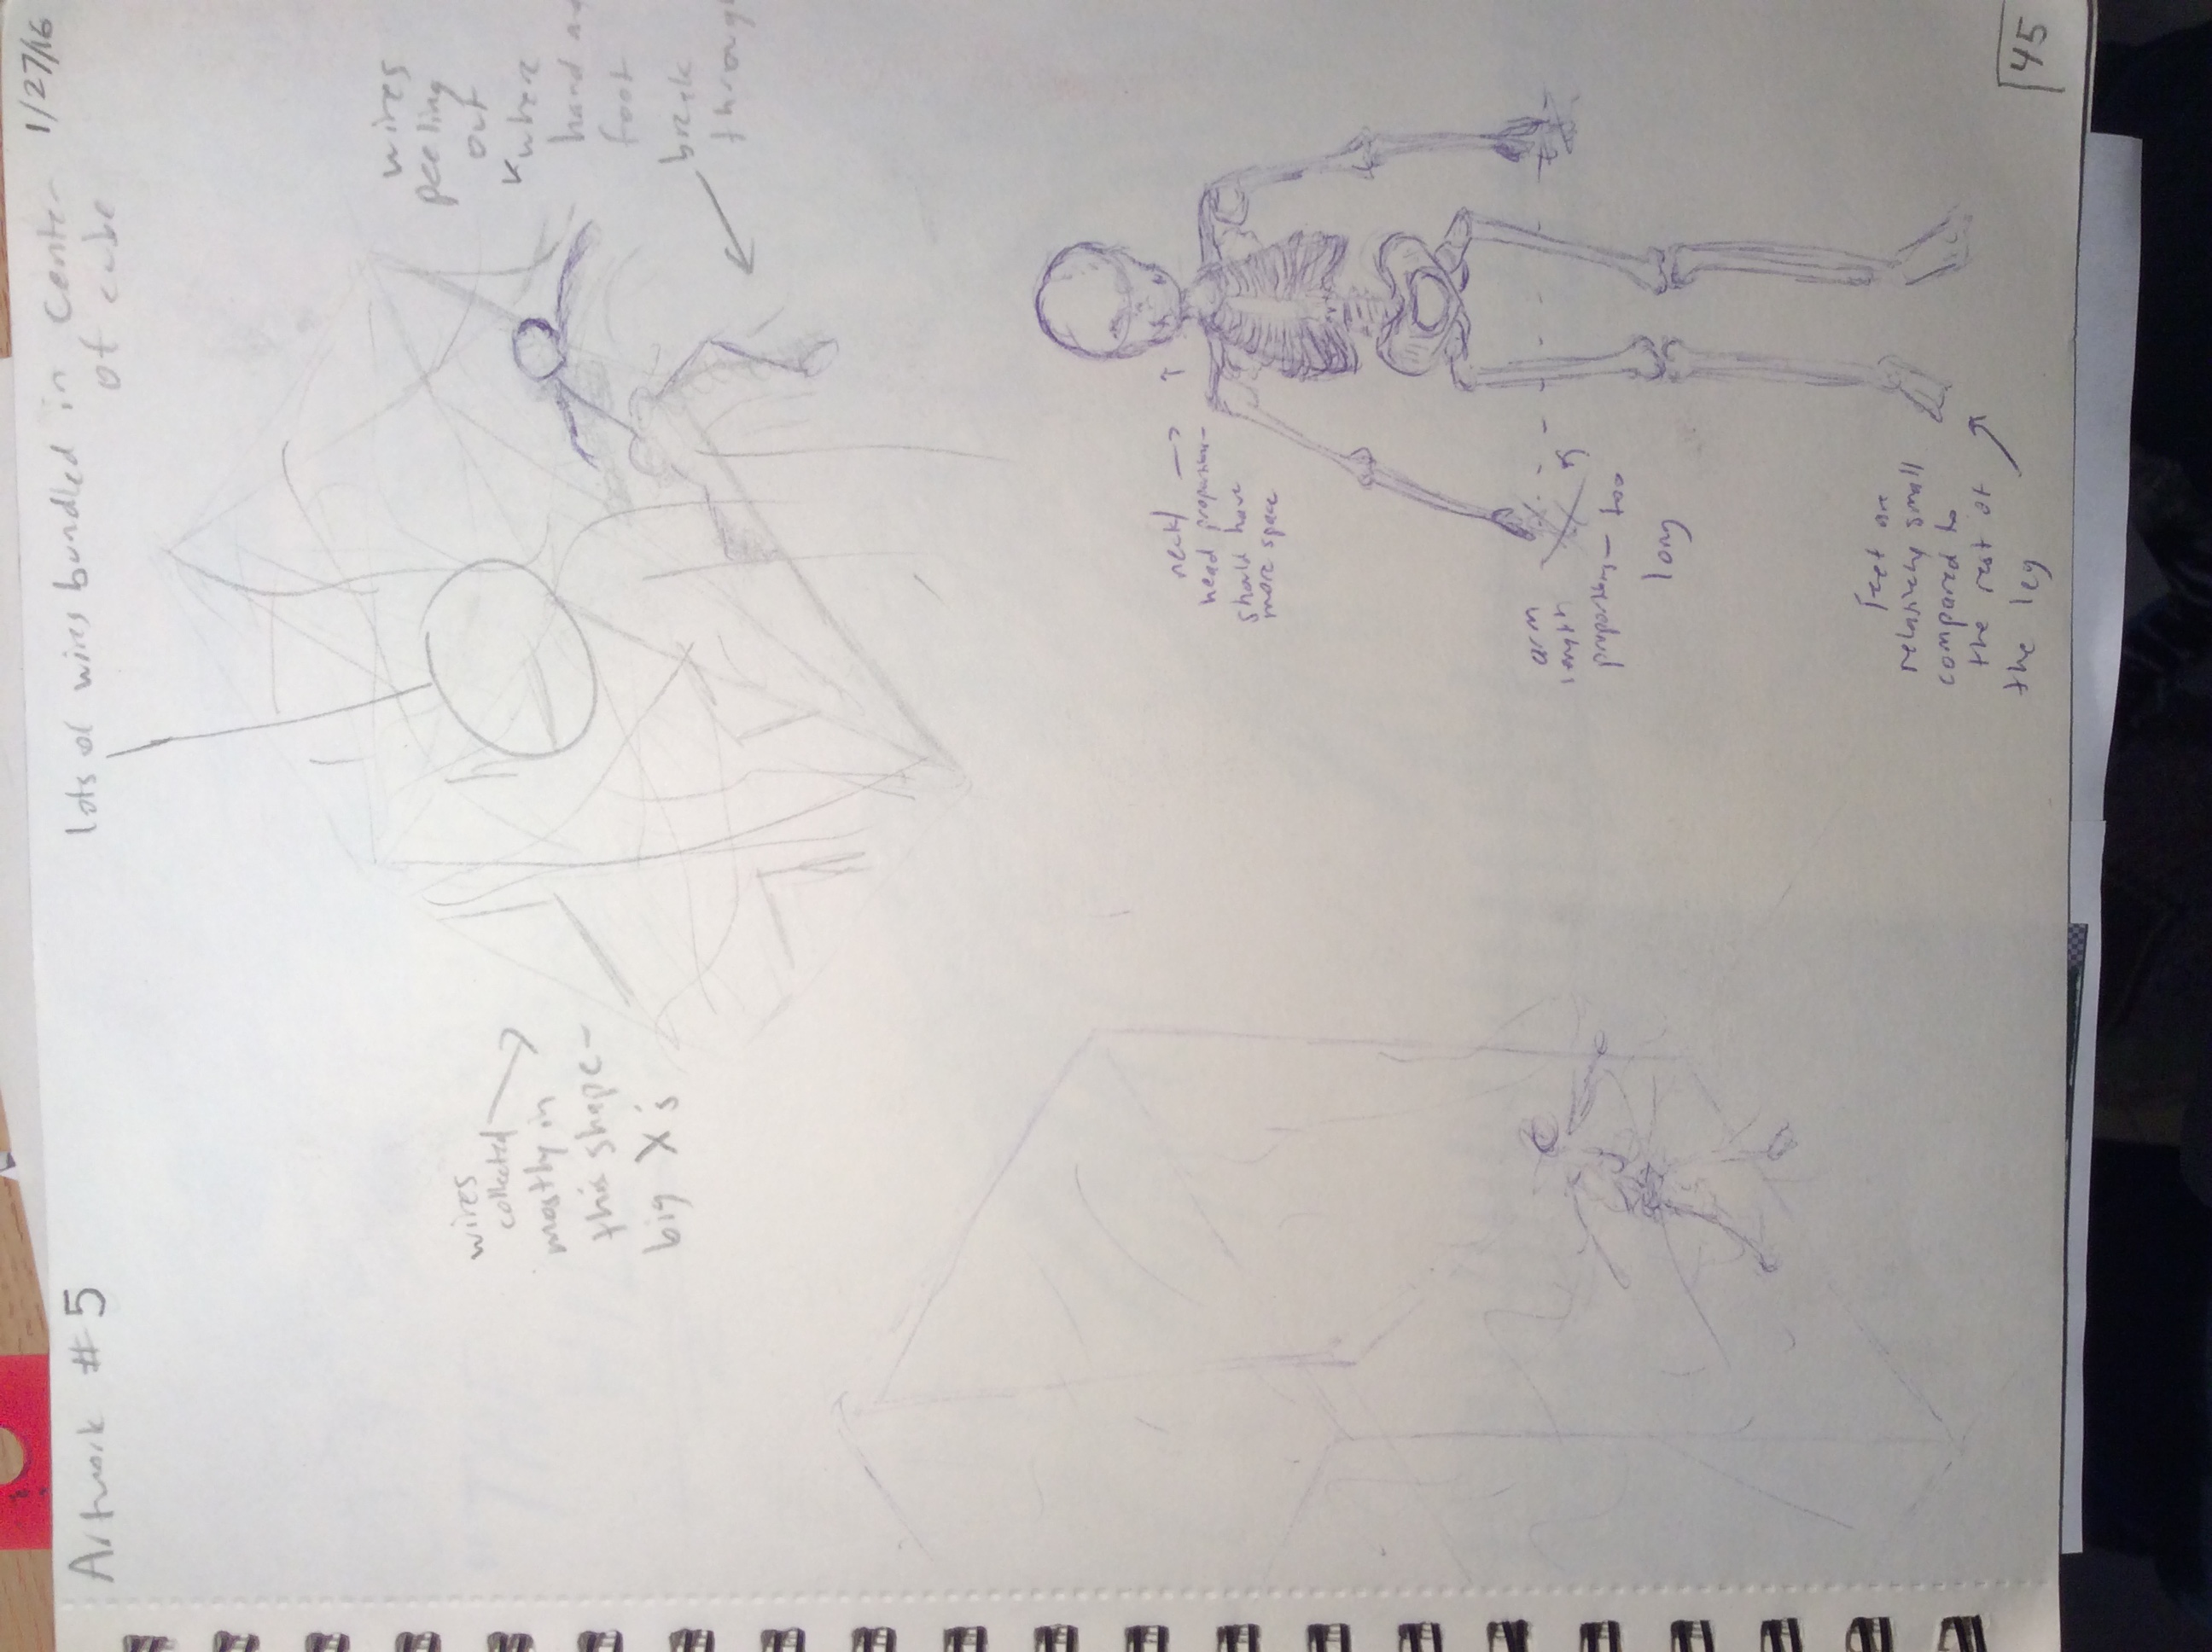 Artwork #5
1/27/16
lots of wires bundled in center
of cube
wires
collected
mostly in
this shape-
big X's
wires
peeling
out
where
hand and
foot
break
through
neck/
head proportion-
should have
more space
arm
length
proportion- too
long
feet are
relatively small
compared to
the rest of
the leg
45